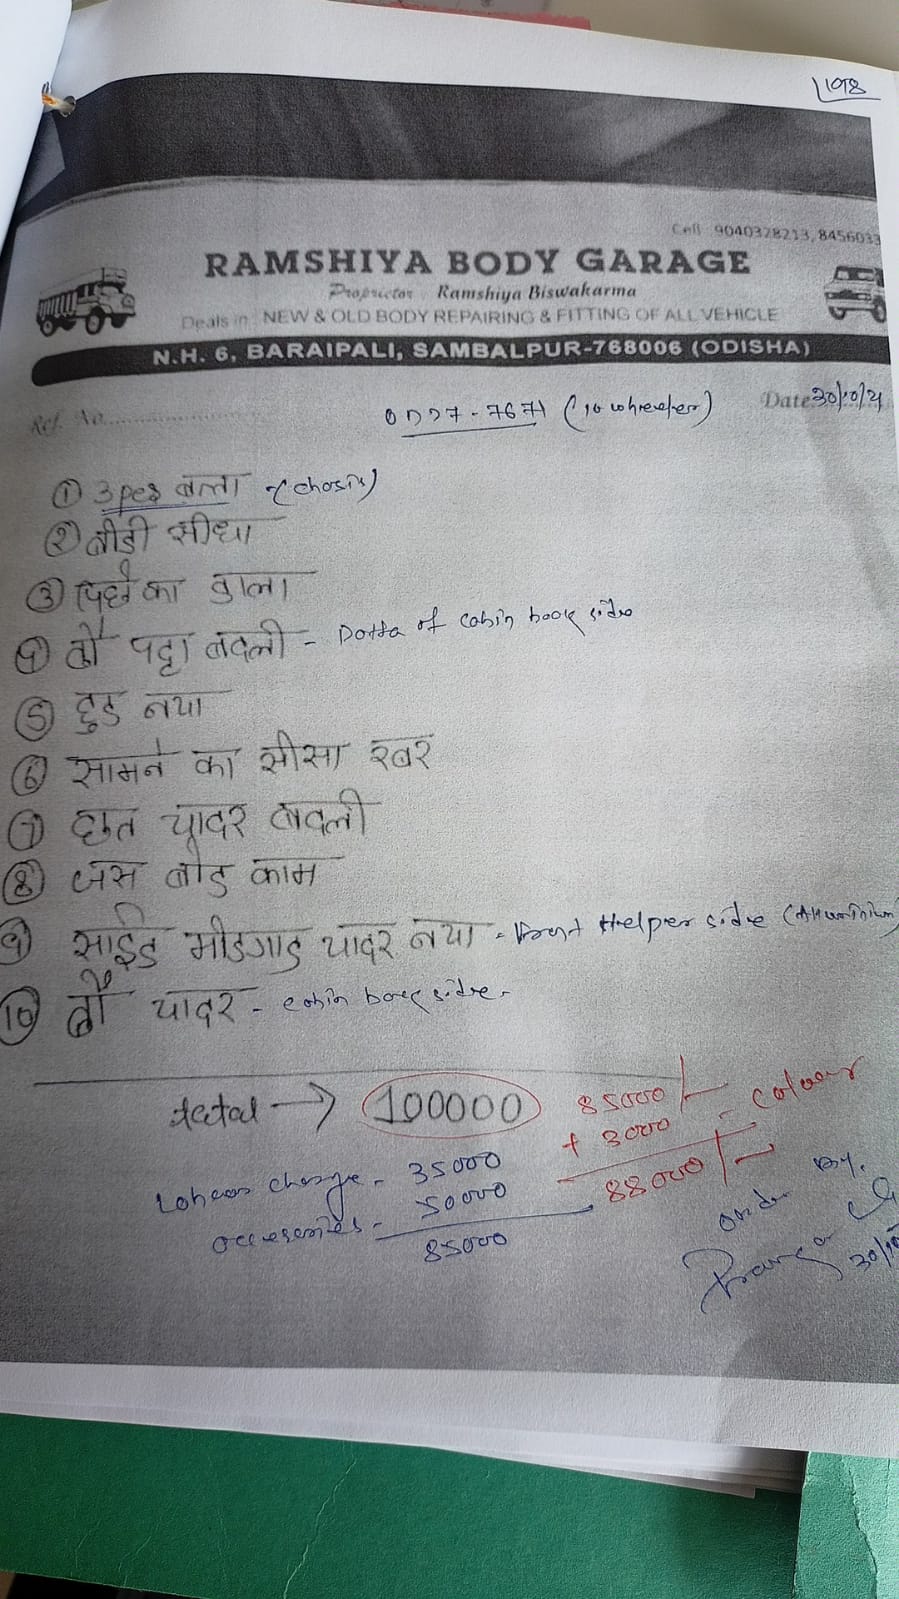 198
Cell 9040328213, 8456033
RAMSHIYA BODY GARAGE
Proprietor Ramshiya Biswakarma
Deals in : NEW & OLD BODY REPAIRING & FITTING OF ALL VEHICLE
N.H. 6, BARAIPALI, SAMBALPUR-768006 (ODISHA)
Ref. No. Date 30/10/21
7671 (10 wheeler)
① 3 pes बल्ला (chasis)
② बीडी सीधा
③ पिछे का डाला
④ बौ पट्टा बदली - Patta of cabin back side
⑤ हुड नया
⑥ सामने का सीसा रबर
⑦ छत चादर बदली
⑧ जस बोड काम
⑨ साईड मीडगाड चादर नया - Front Helper side (Aluminium)
⑩ बौ चादर - cabin back side
total → 100000
85000/-
+ 3000 - colour
88000/-
charge - 35000
accesories - 50000
85000
Order By.
30/10